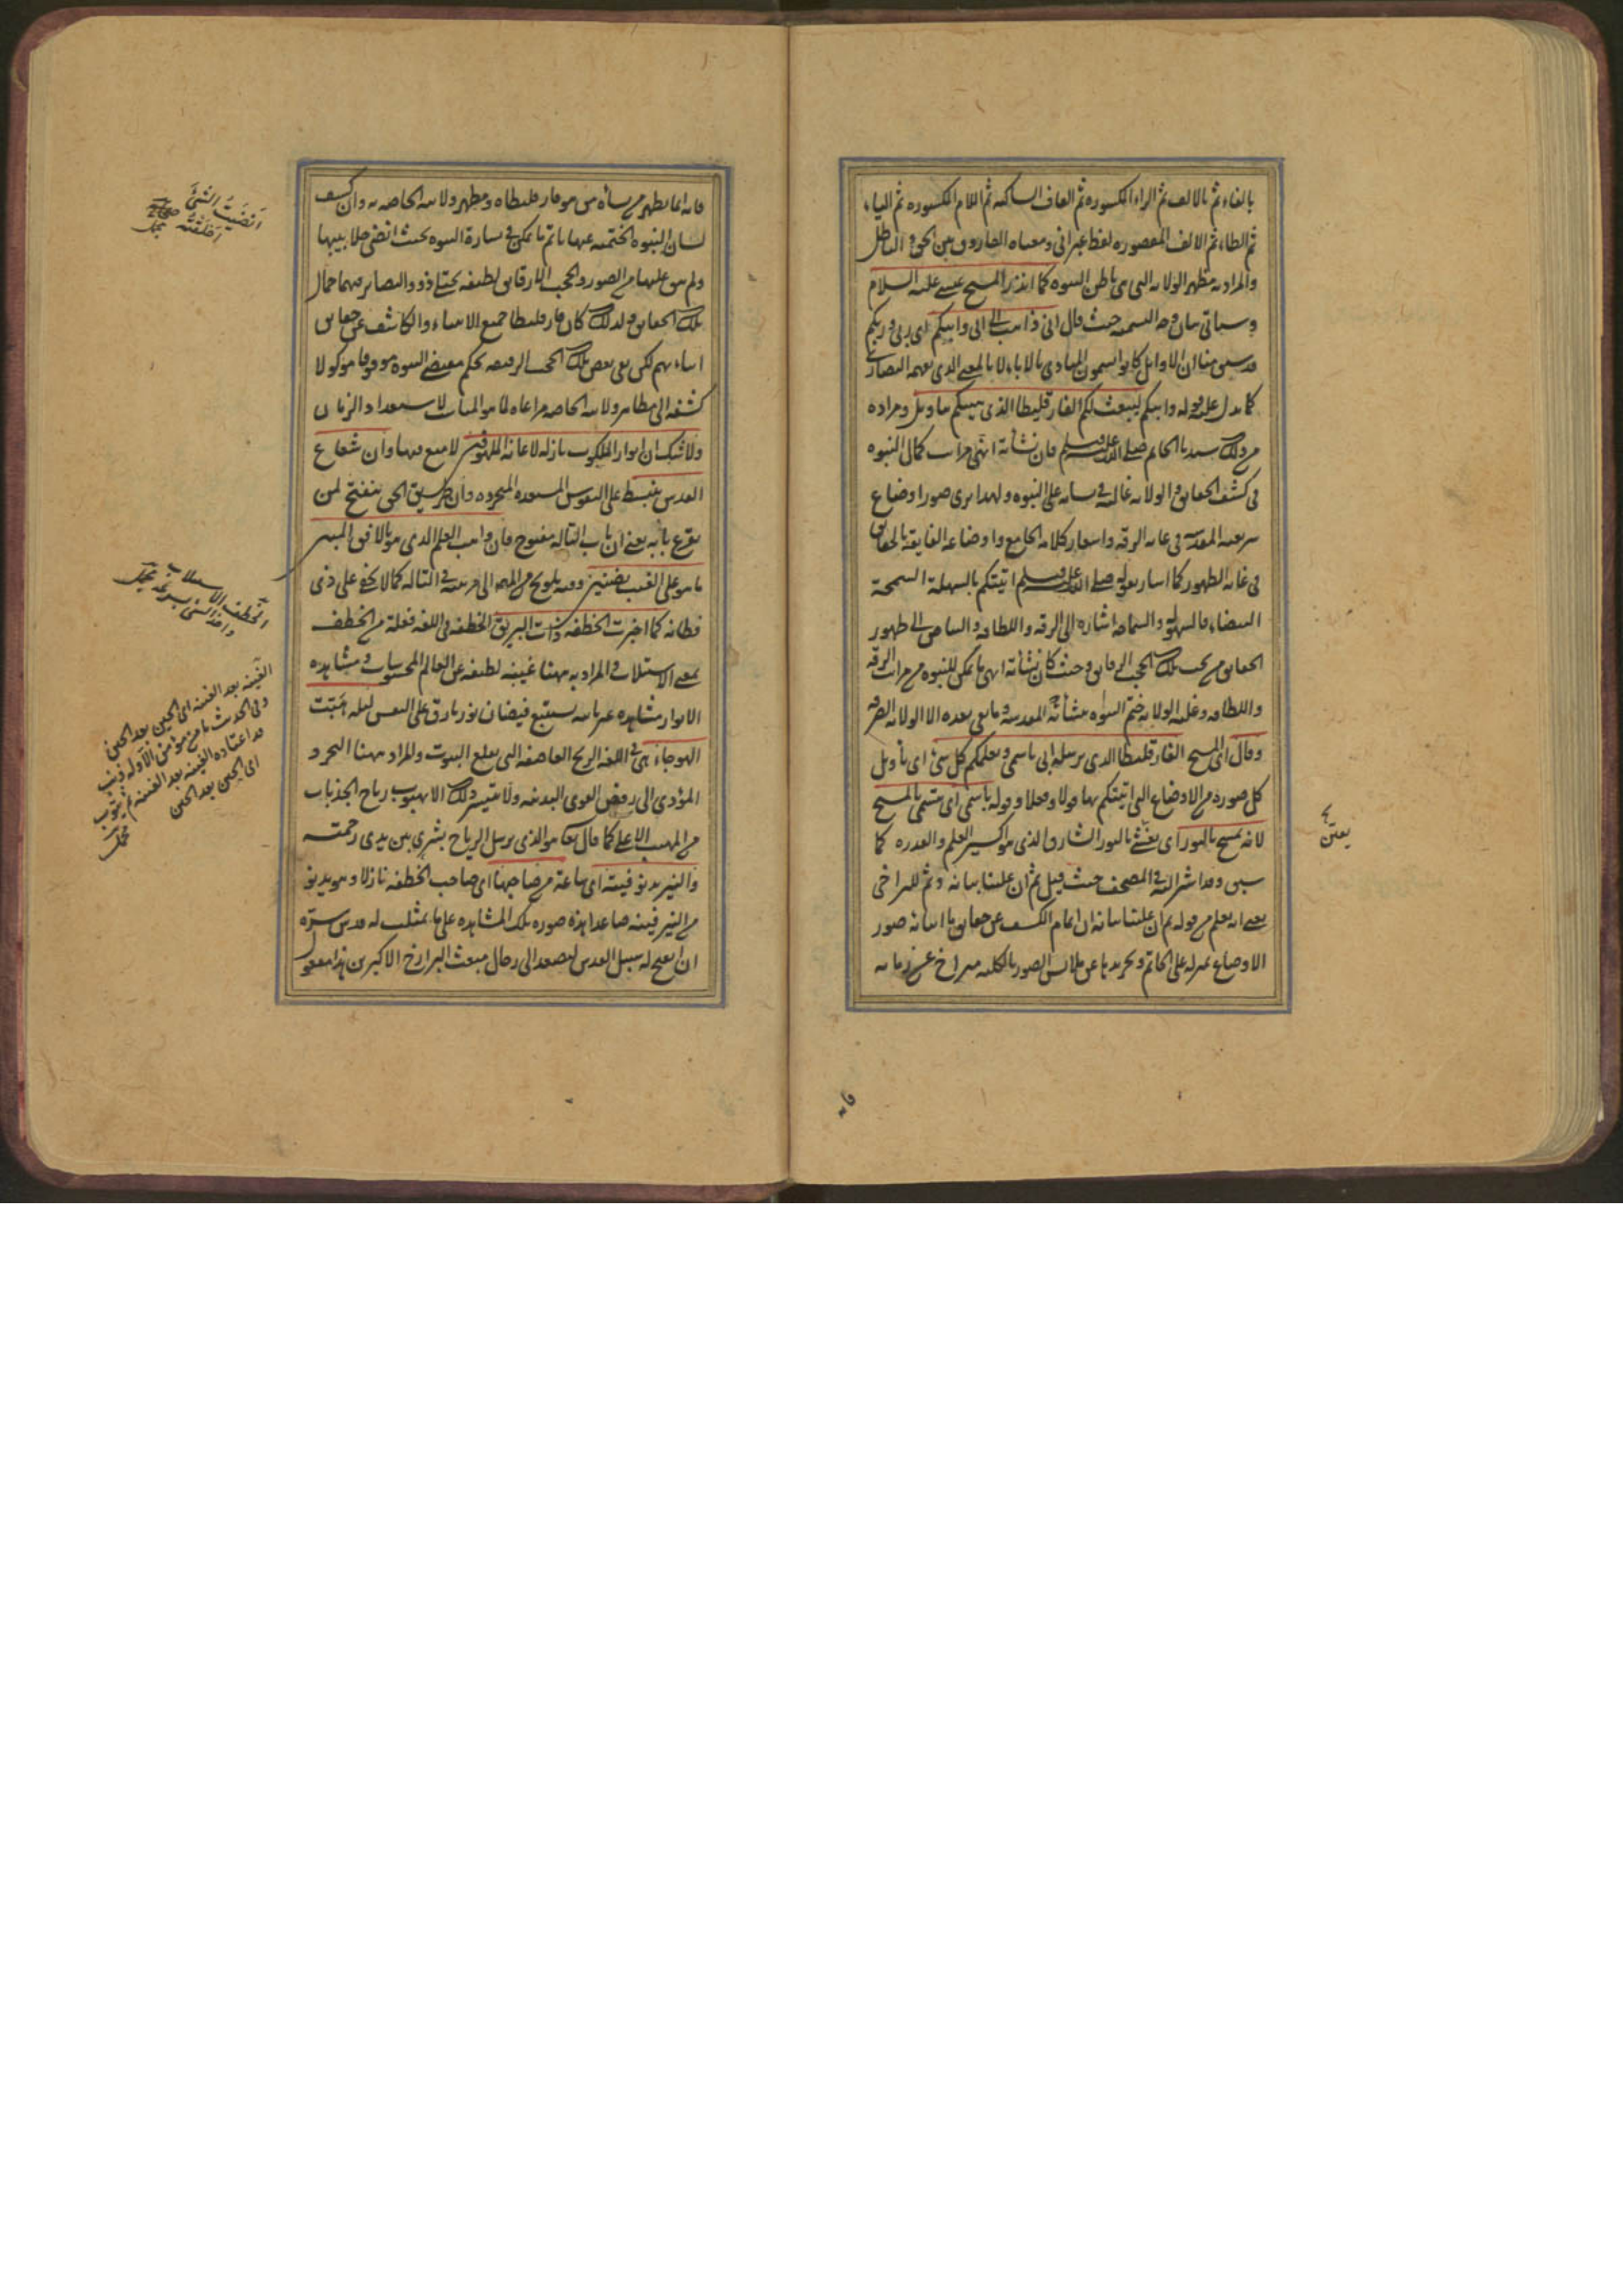 بالفاء ثم بالالف ثم الراء المكسوره ثم القاف الساكنه ثم اللام المكسوره ثم الياء
ثم الطاء ثم الالف المقصوره لفظ عبرانى ومعناه الفاروق بين الحق و الباطل
والمراد به مظهر الولايه التى هى باطن النبوه كما انذر المسيح عيسى عليه السلام
وسياتى بيان وجه التسميه حيث قال انى ذاهب الى ابى وابيكم اى ربى وربكم
قد سبق منا ان الاوايل كانوا يسمون المبادى بالاباء لا بالمعنى الذى يفهمه النصارى
كما يدل عليه قوله وابيكم ليبعث لكم الفارقليطا الذى ينبيكم بالتاويل ومراده
من ذلك سيدنا الخاتم صلى الله عليه وسلم فان نشأته انتهى مراتب كمال النبوه
فى كشف الحقايق والولايه غالبه فى شانه على النبوه ولهذا يرى صور اوضاع
شريعته المقدسه فى غايه الرقه واشعار كلامه الجامع واوضاعه الفايقه بالحقايق
فى غايه الظهور كما اشار بقوله صلى الله عليه وسلم اتيتكم بالسهلة السمحة
البيضاء فالسهوله والسماحه اشاره الى الرقه واللطافه والبياض الى ظهور
الحقايق من تحت تلك الحجب الرقاق وحيث كان نشأته انهى ما يمكن للنبوه من مراتب الرقه
واللطافه وغلبه الولايه ختم النبوه بنشأته المقدسه وما بقى بعده الا الولايه الصرفه
وقال اى المسيح الفارقليطا الذى يرسله ابى باسمى ويعلمكم كل شئ اى تأويل
كل صورة من الاوضاع التى اتيتكم بها قولا وفعلا وقوله باسمى اى يتسمى بالمسيح
لانه يمسح بالنور اى يغشى بالنور الشارق الذى هو اكسير العلم والقدره كما
سبق وقد اشير اليه فى المصحف حيث قيل ثم ان علينا بيانه وثم للتراخى
يعنى انه يعلم من قوله ثم ان علينا بيانه ان اتمام الكشف عن حقايق ما ابانه صور
الاوضاع المنزله على الخاتم وتجريدها عن ملابس الصور بالكليه متراخ عن زمانه
يعنى
فانه
فانه انما يظهر من نشأة من هو فارقليطاه ومظهر ولايته الخاصه به وان كشف
لسان النبوه الختميه عنها باتم ما يمكن فى نشاءة النبوه بحيث انضى جلابيبها
ولم يبق عليها من الصور والحجب الا رقايق لطيفه يجتلى ذوو البصاير منها جمال
تلك الحقايق ولذلك كان فارقليطا جميع الانبياء والكاشف عن حقايق
انبائهم لكن بقى بعض تلك الحجب الرقيقه بحكم مقتضى النبوه موقوفا موكولا
كشفه الى مظاهر ولايته الخاصه مراعاه لما هو المناسب لاستعداد الزمان
ولا شك ان انوار الملكوت نازله لاعانة الملهوفين لا منع فيها وان شعاع
القدس ينبسط على النفوس المستعده المتجرده وان طريق الحق ينفتح لمن
يقرع بابه يعنى ان باب التاله مفتوح فان واهب العلم الذى هو بالافق المبين
ما هو على الغيب بضنين وفيه تلويح من المص الى مرتبته فى التاله كما لا يخفى على ذى
فطانه كما اخبرت الخطفه ذات البريق الخطفه فى اللغه فعلة من الخطف
بمعنى الاستلاب والمراد به هاهنا غيبة لطيفه عن العالم المحسوسات ومشاهده
الانوار مشاهده عيانيه يستتبع فيضان نور بارق على النفس ليله هبت
الهوجاء هى فى اللغه الريح العاصفه التى يقلع البيوت والمراد ههنا التجرد
المؤدى الى رفض القوى البدنيه ولا يتيسر ذلك الا بهبوب رياح الجذبات
من المهب الاعلى كما قال تعالى هو الذى يرسل الرياح بشرى بين يدى رحمته
والنير يدنو فينته اى ساعة من صاحبها اى صاحب الخطفه نازلا وهو يدنو
من النير فينه صاعدا هذه صوره تلك المشاهده على ما تمثلت له قدس سره
ان انفتح له سبيل القدس ليصعد الى رجال مبعث البرازخ الاكبرين هذا مفعول
انضيت الشئ
اخلقته مجمل
الخطف الاستلاب
واخذ الشئ بسرعة مجمل
الفينه بعد الفينه اى الحين بعد الحين
وفى الحديث ما من مؤمن الا وله ذنب
قد اعتاده الفينه بعد الفينه ثم يتوب
اى الحين بعد الحين
مجمل